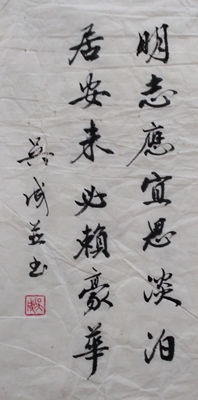 明志應宜思淡泊
居安未必賴豪華
吳成书